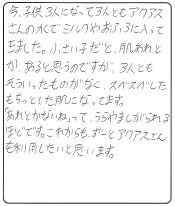 今、子供3人になって3人ともアクアス
さんの水でミルクやおふろに入って
きました。小さい子だと、肌あれとか
が、あると思うのですが、3人とも
そういったものがなく、スベスベした
もちっとした肌になってます。
「あれとかないねって、うらやましがられる
ほどです。これからも、ずーとアクアスさん
を利用したいと思います。